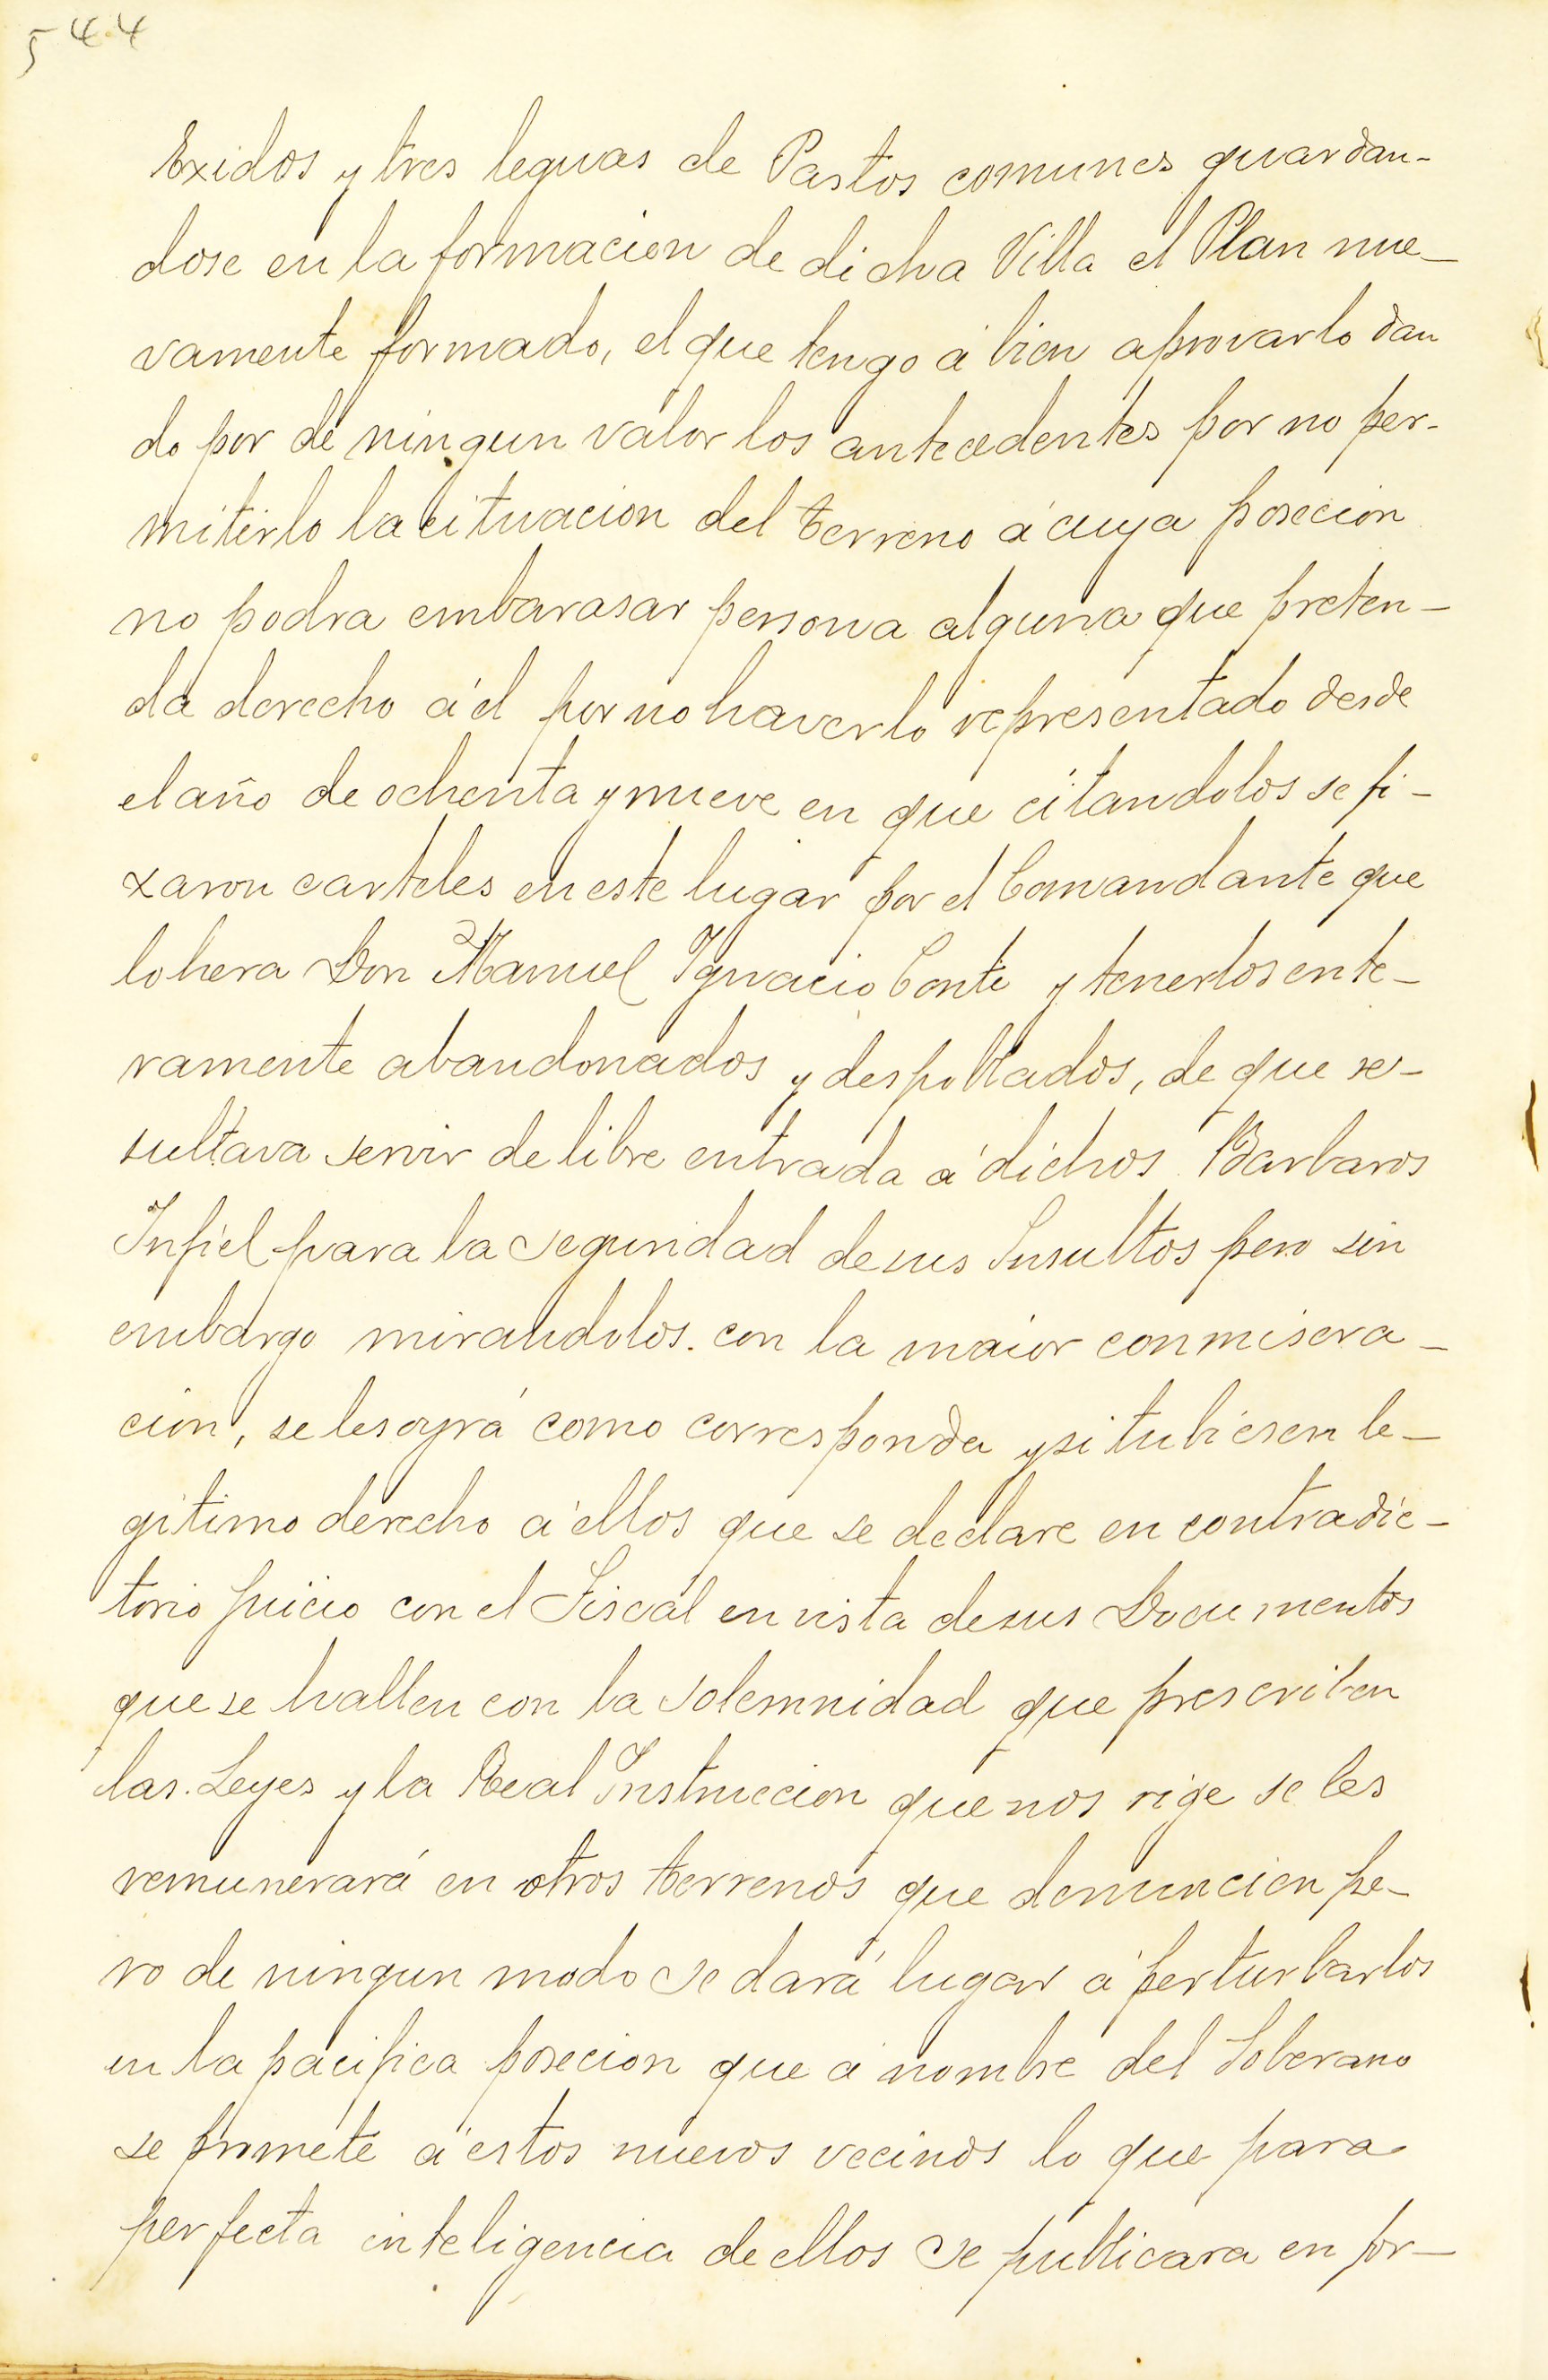 544
Exidos y tres leguas de Pastos comunes guardan-
dose en la formacion de dicha Villa el Plan nue-
vamente formado, el que tengo á bien aprovarlo dan
do por de ningun valor los antecedentes por no per-
mitirlo la cituacion del terreno á cuya posecion
no podra embarasar persona alguna que preten-
da derecho á él por no haverlo representado desde
el año de ochenta y nueve en que citandolos se fi-
xaron carteles en este lugar por el Comandante que
lo hera Don Manuel Ignacio Conti y tenerlos ente-
ramente abandonados y despoblados, de que re-
sultava servir de libre entrada á dichos Barbaros
Infiel para la seguridad de sus Insultos pero sin
embargo mirandolos. con la maior conmisera-
cion, se les oyrá como corresponda y si tubiesen le-
gitimo derecho á ellos que se declare en contradic-
torio juicio con el Fiscal en vista de sus Documentos
que se hallen con la solemnidad que prescriben
las. Leyes y la Real Instruccion que nos rige se les
remunerará en otros terrenos que denuncien pe-
ro de ningun modo se dará lugar á perturbarlos
en la pacifica posecion que á nombre del Soberano
se promete á estos nuevos vecinos lo que para
perfecta inteligencia de ellos se publicara en for-